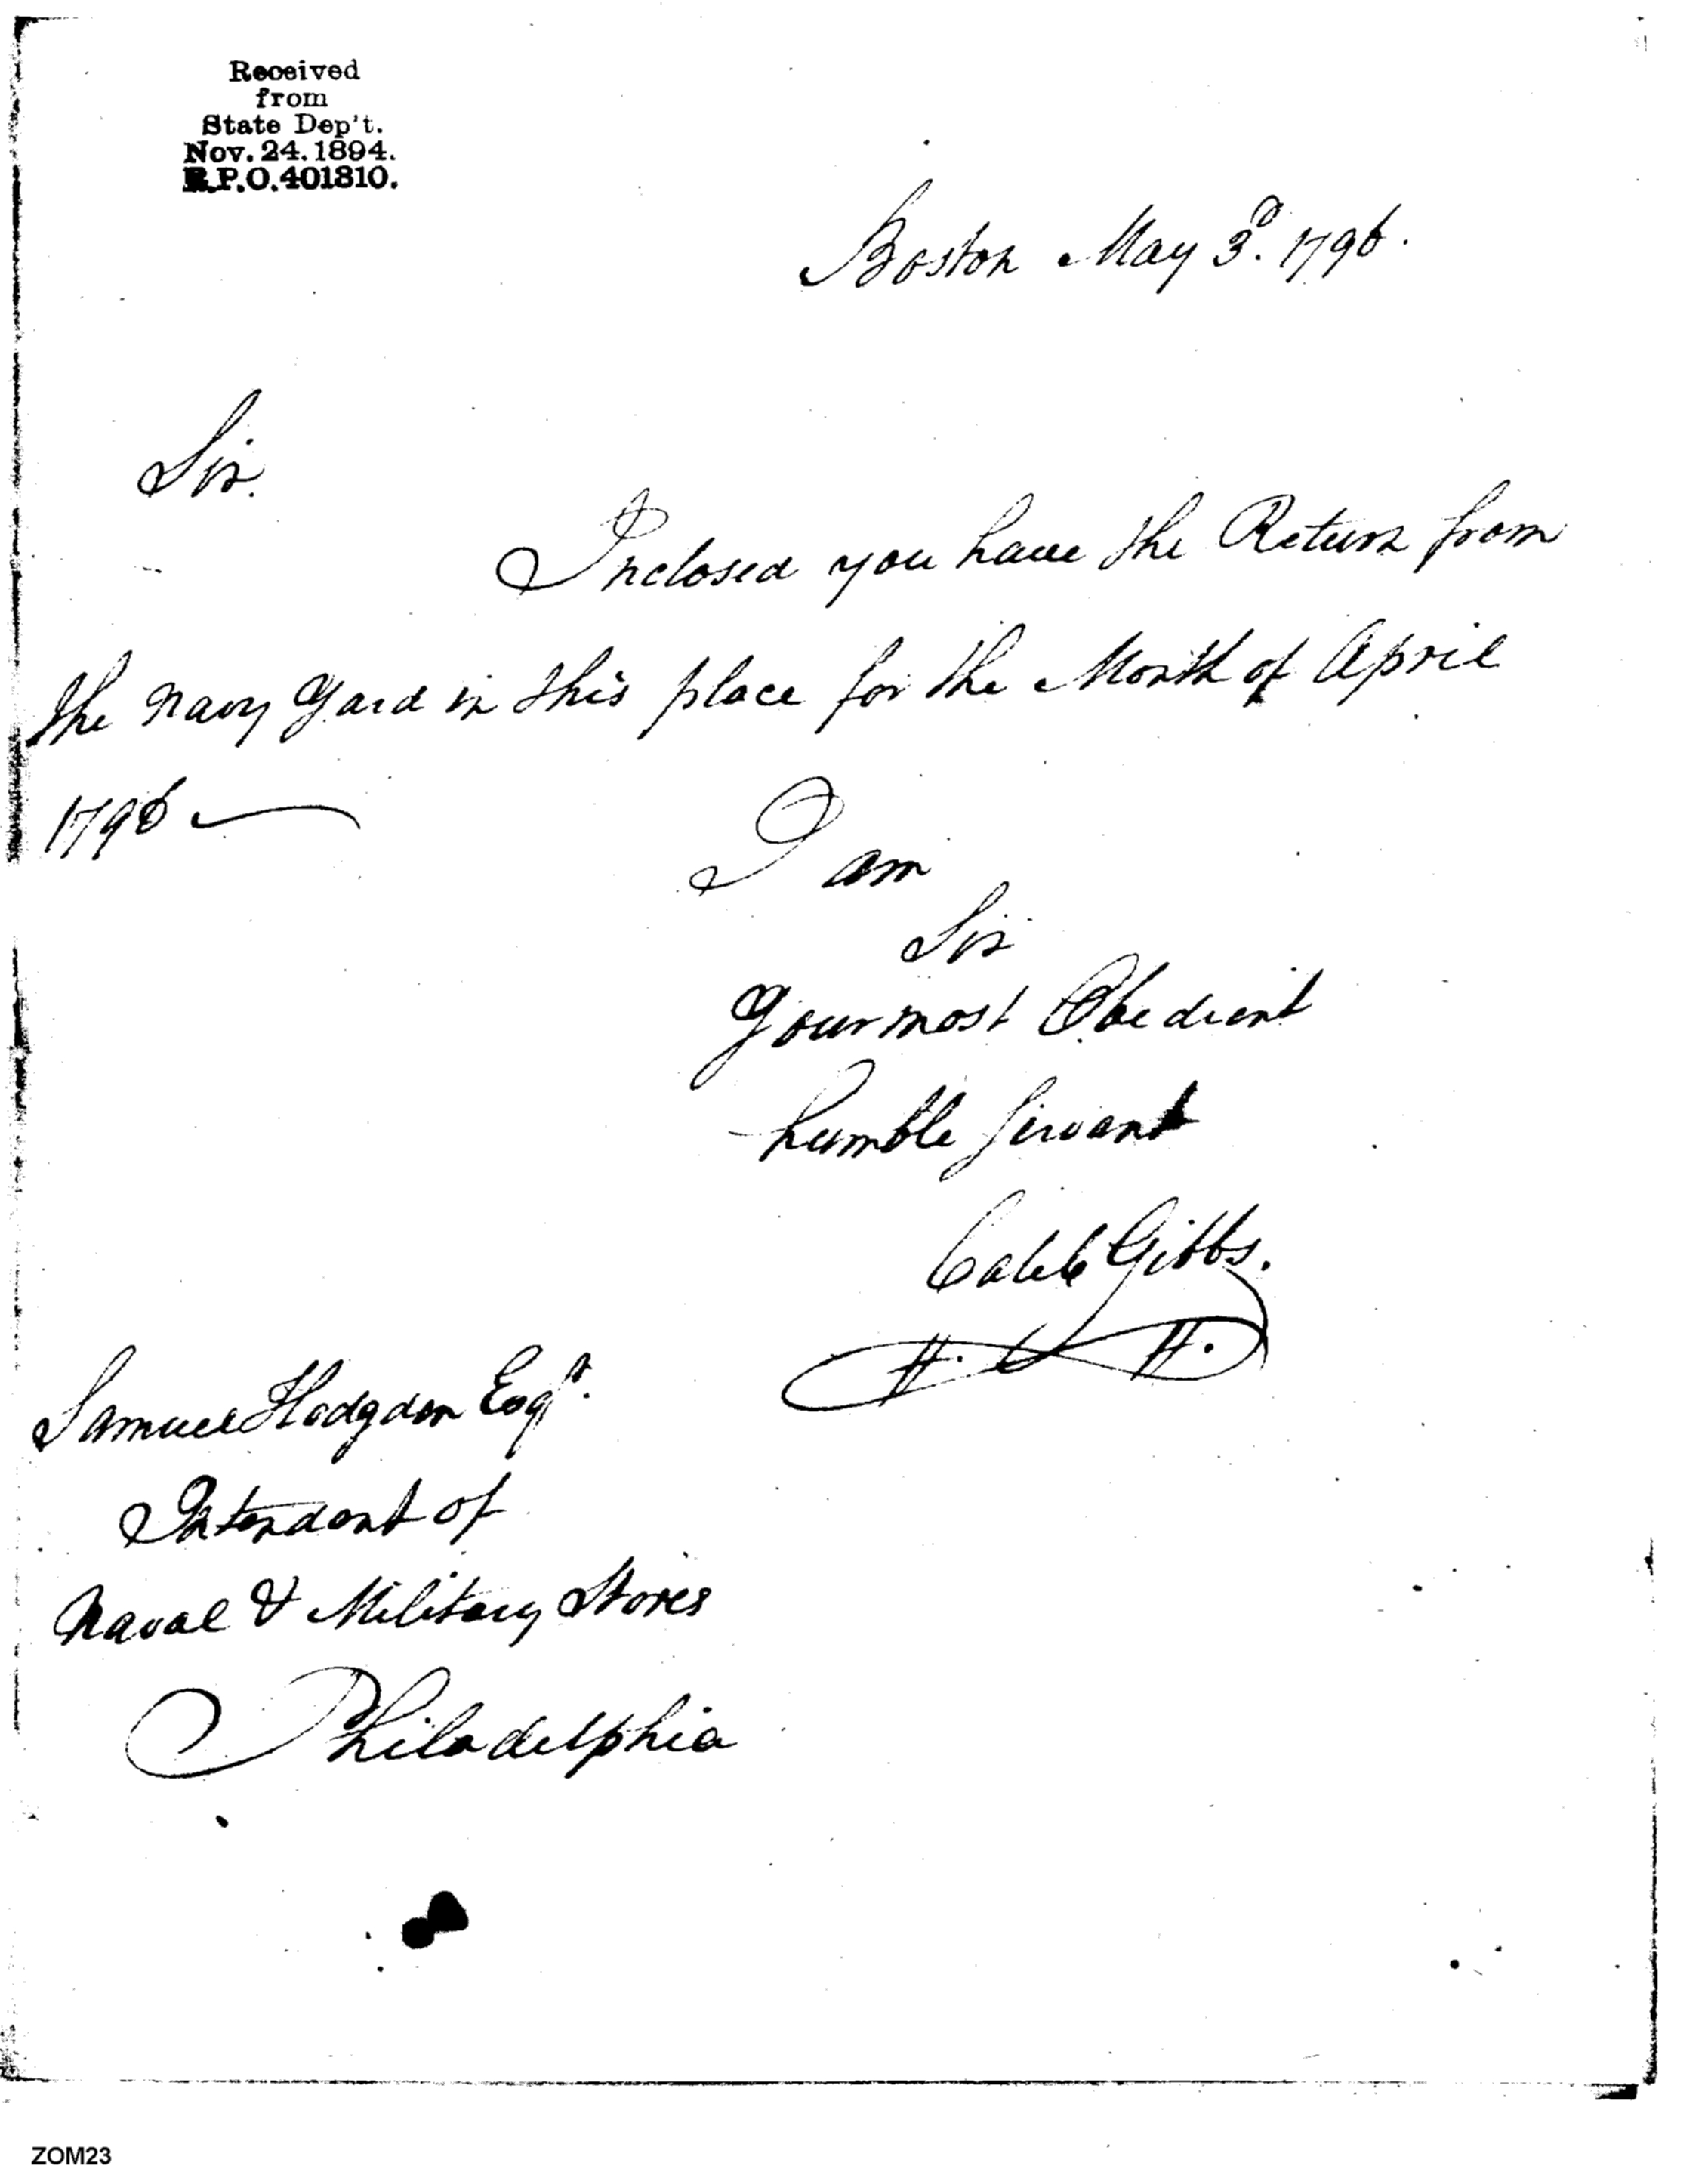 Received
from
State Dep't.
Nov. 24. 1894.
R.P.O. 401810.
Boston May 3d. 1796.
Sir.
Inclosed you have the Return from
the Navy Yard in this place for the Month of April
1796
I am
Sir
Your most Obedient
humble Servant
Caleb Gibbs.
Samuel Hodgdon Esqr.
Intendant of
Naval & Military Stores
Philadelphia
ZOM23